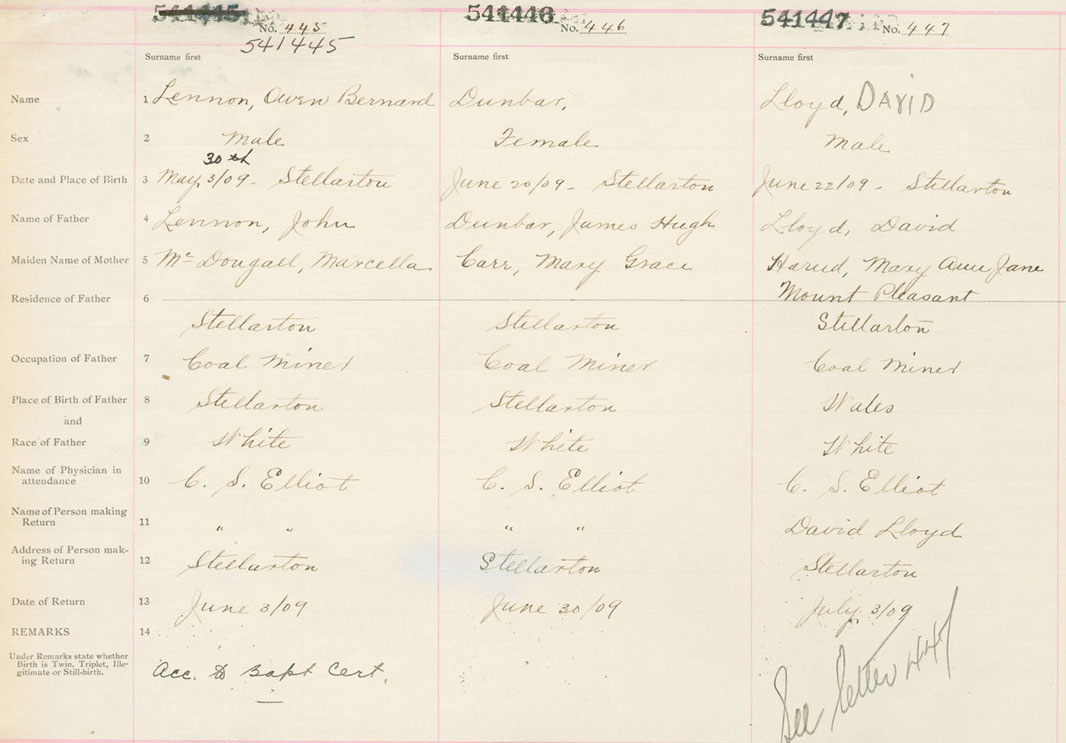 541445 541446 541447
No. 445 No. 446 No. 447
541445
Surname first Surname first Surname first
Name 1 Lennon, Owen Bernard Dunbar, Lloyd, DAVID
Sex 2 Male Female Male
30th
Date and Place of Birth 3 May 3/09 - Stellarton June 20/09 - Stellarton June 22/09 - Stellarton
Name of Father 4 Lennon, John Dunbar, James Hugh Lloyd, David
Maiden Name of Mother 5 Mc Dougall, Marcella Carr, Mary Grace Mary Ann Jane
Residence of Father 6 Mount Pleasant
Stellarton Stellarton Stellarton
Occupation of Father 7 Coal Miner Coal Miner Coal Miner
Place of Birth of Father 8 Stellarton Stellarton Wales
and
Race of Father 9 White White White
Name of Physician in
attendance 10 C. S. Elliot C. S. Elliot C. S. Elliot
Name of Person making
Return 11 " " " " David Lloyd
Address of Person mak-
ing Return 12 Stellarton Stellarton Stellarton
Date of Return 13 June 3/09 June 30/09 July 3/09
REMARKS 14
Under Remarks state whether
Birth is Twin, Triplet, Ille-
gitimate or Still-birth.
Acc. to Bapt Cert.
See letter 447